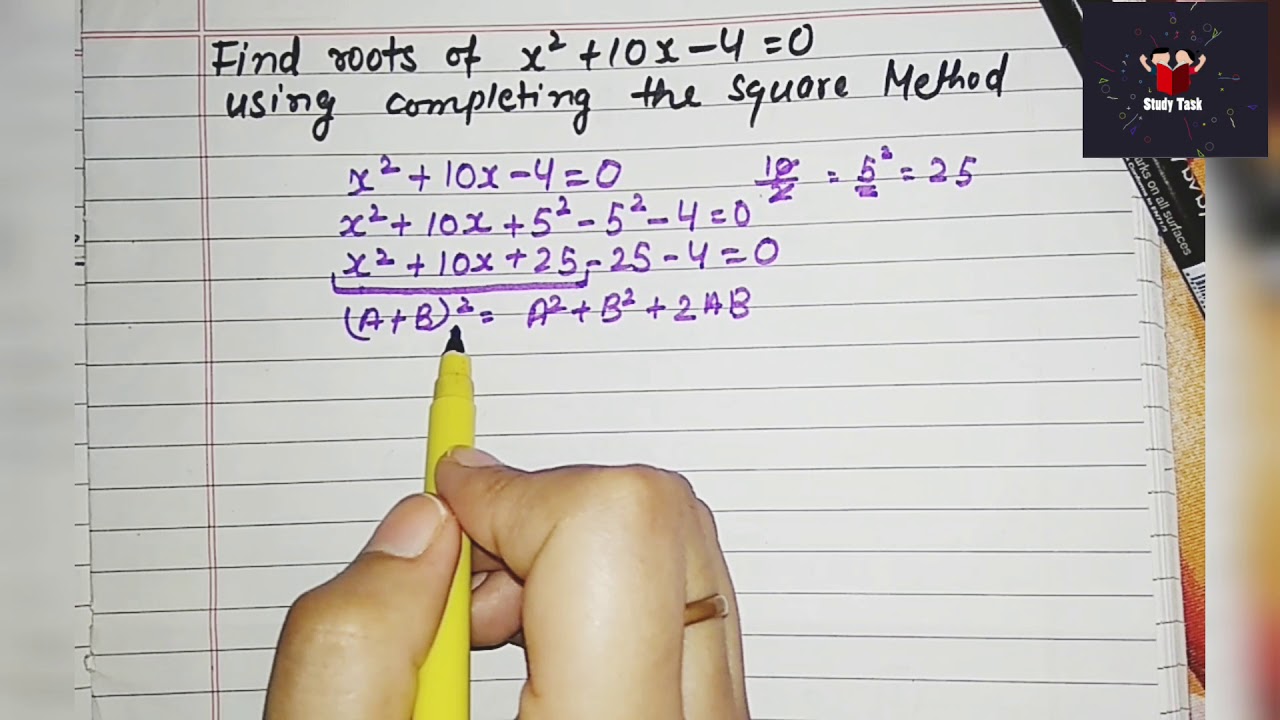 Find roots of x² + 10x - 4 = 0
using completing the square Method
x² + 10x - 4 = 0
10/2 = 5² = 25
x² + 10x + 5² - 5² - 4 = 0
x² + 10x + 25 - 25 - 4 = 0
(A + B)² = A² + B² + 2AB
Study Task
arks on all surfaces